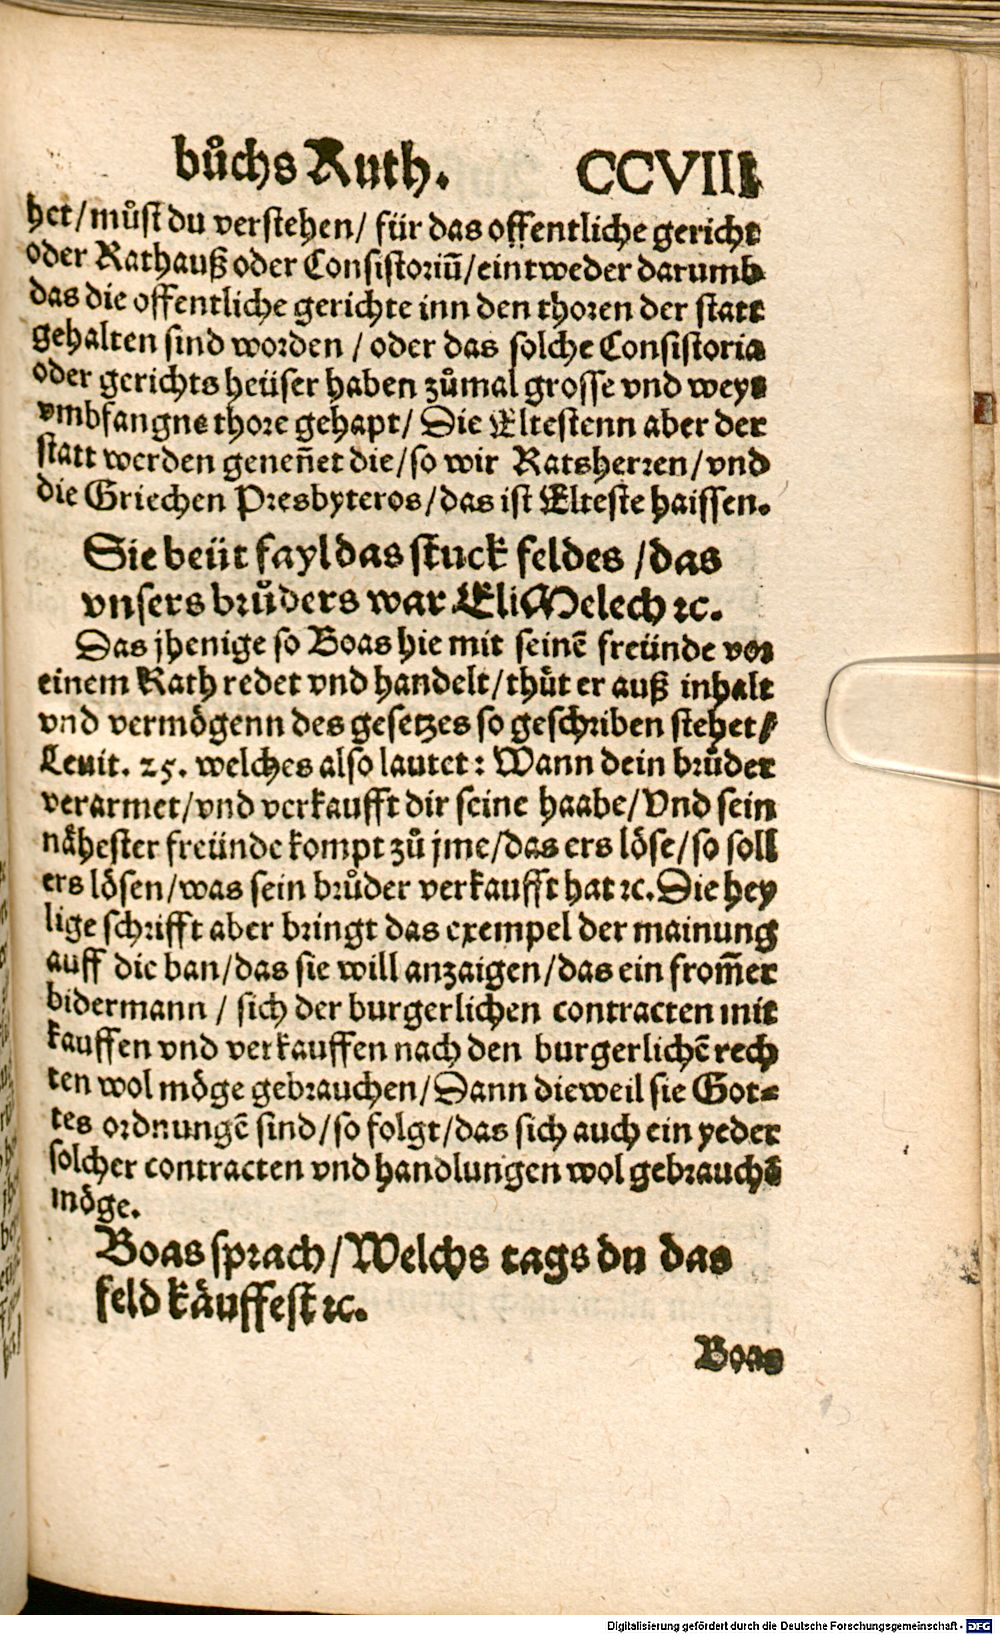 bůchs Ruth. CCVIII
het/můst du verstehen/ für das offentliche gericht
oder Rathauß oder Consistoriū/eintweder darumb
das die offentliche gerichte inn den thoren der statt
gehalten sind worden / oder das solche Consistoria
oder gerichts heüser haben zůmal grosse vnd weyt
vmbfangne thore gehapt/ Die Eltestenn aber der
statt werden geneñet die/so wir Ratsherren/vnd
die Griechen Presbyteros/das ist Elteste haissen.
Sie beüt fayl das stuck feldes /das
vnsers brůders war EliMelech ꝛc.
Das jhenige so Boas hie mit seinē freünde vor
einem Rath redet vnd handelt/thůt er auß inhalt
vnd vermögenn des gesetzes so geschriben stehet/
Leuit. 25. welches also lautet: Wann dein brůder
verarmet/vnd verkaufft dir seine haabe/Vnd sein
nähester freünde kompt zů jme/das ers löse/so soll
ers lösen/was sein brůder verkaufft hat ꝛc. Die hey
lige schrifft aber bringt das exempel der mainung
auff die ban/das sie will anzaigen/das ein from̄er
bidermann / sich der burgerlichen contracten mit
kauffen vnd verkauffen nach den burgerlichē rech
ten wol möge gebrauchen/Dann dieweil sie Got=
tes ordnungē sind/so folgt/das sich auch ein yeder
solcher contracten vnd handlungen wol gebrauchē
möge.
Boas sprach/Welchs tags du das
feld käuffest ꝛc.
Boas
Digitalisierung gefördert durch die Deutsche Forschungsgemeinschaft - DFG